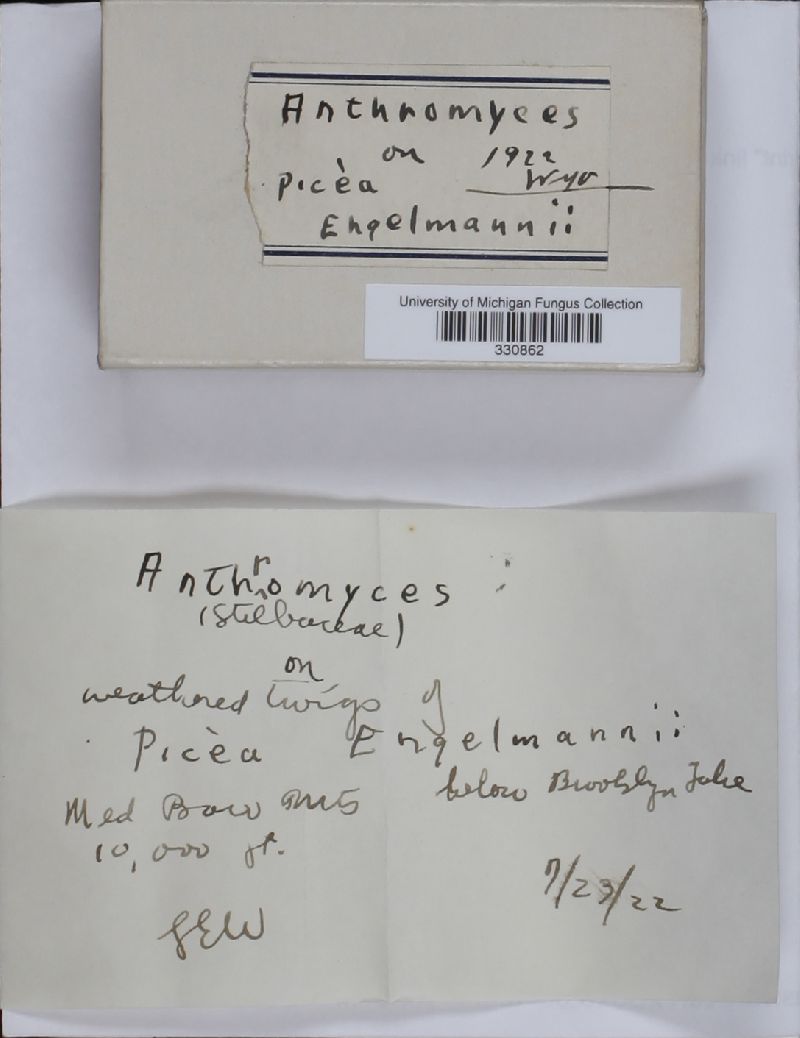 Anthromyces
on 1922
Picèa Wyo
Engelmannii
University of Michigan Fungus Collection
330862
Anthromyces
(Stilbaceae)
on
weathered twigs of
Picèa Engelmannii
Med Bow Mts below Brooklyn Lake
10,000 ft.
7/23/22
GEW